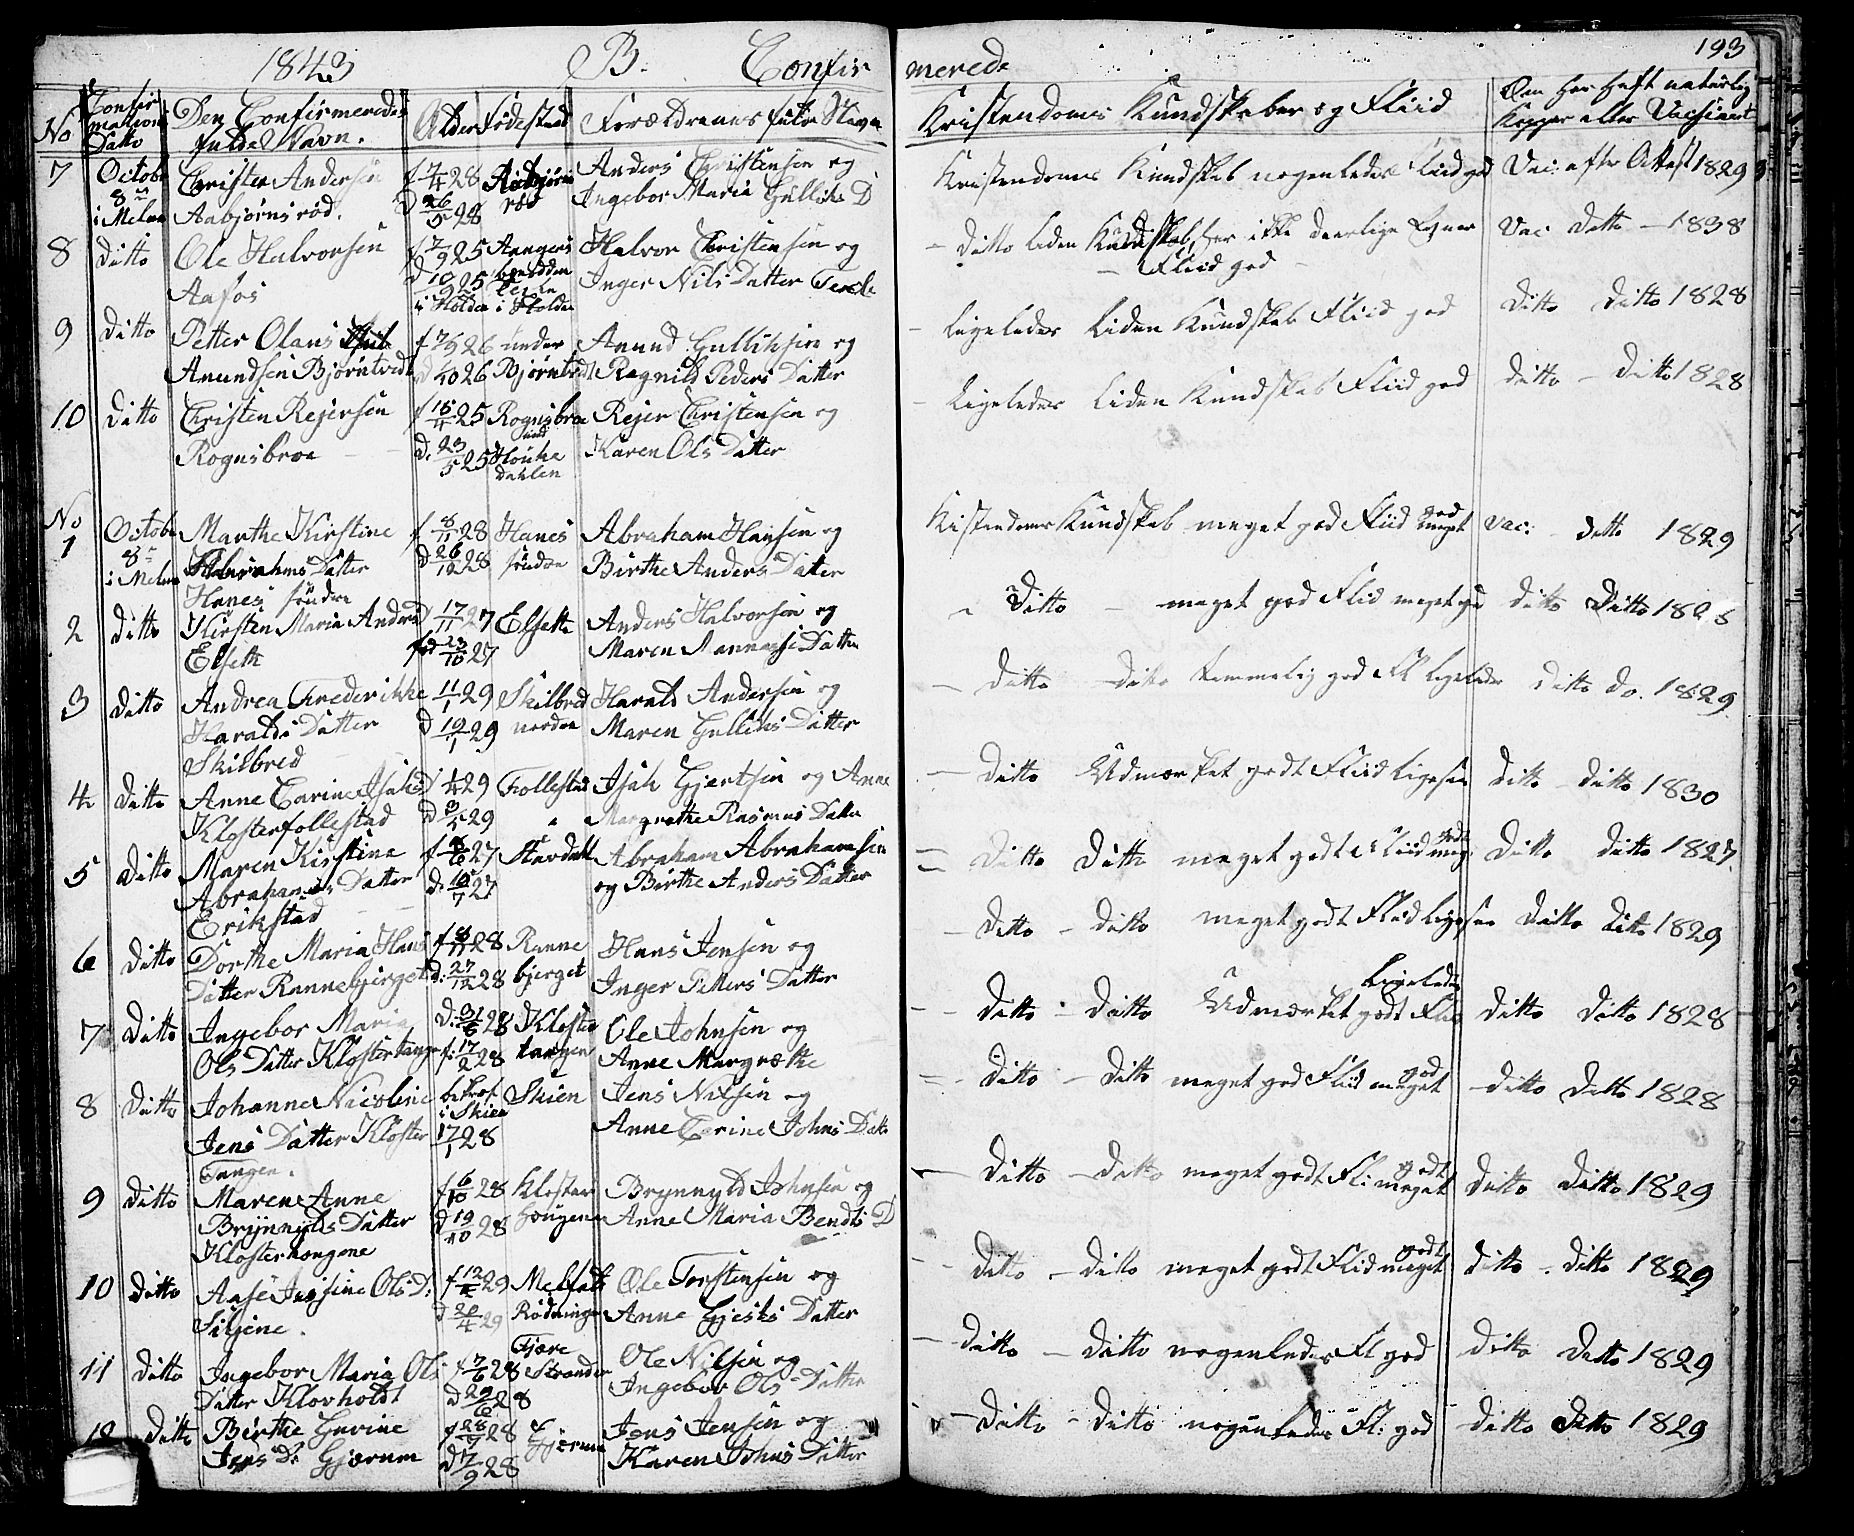 1843 B. Confirmerede 193
No Confirmations Datto Den Confirmeredes fulde Navn. Alder Fødested Forældrenes fulde Navn Kristendoms Kundskaber og Fliid Om har haft naturlig Kopper eller Vacsineret
7 October 8de i Melum Christen Andersen Aabjørnsrød. f 7/4 28 D 26/5 28 Aabjørnsrød Anders Christensen og Ingebor Maria Gulliks D Kristendoms Kundskab nogenledes Fliid god Vac: efter Attest 1829
8 Ditto Ole Halvorsen Aafos f 2/9 25 D 10/9 25 i Holden i Holden Halvor Christensen og Inger Nils Datter Ditto liden Kundskab, har ikke daarlige Evner Fliid god Vac Ditto 1838
9 Ditto Petter Olaus Anundsen Bjørntvedt f 7/9 26 d 1/10 26 under Bjørntvedt Anund Gulliksen og Ragnild Peders Datter ligeledes liden Kundskab Fliid god Ditto Ditto 1828
10 Ditto Christen Rejersen Rognsbroe f 15/4 25 d. 23/5 25 Rognsbroe und Dahlen Rejer Christensen og Karen Ols Datter ligeledes liden Kundskab Fliid god Ditto Ditto 1828
No
1 October 8de i Melum Marthe Kirstine Abrahams Datter Hanes søndre f 8/11 28 D 26/10 28 Hanes søndre Abraham Hansen og Birthe Anders Datter Kristendoms Kundskab meget god Fliid meget god Vac: Ditto 1829
2 Ditto Kirsten Maria Anders D Elseth 17/11 27 fød 23/10 27 Elseth Anders Halvorsen og Maren Datter Ditto meget god Fliid meget god Ditto Ditto 1828
3 Ditto Andrea Frederikke Haralds Datter Skilbred 11/1 29 d 19/1 29 Skilbred nordre Harald Andersen og Maren Gulliks Datter Ditto Ditto temmelig god Fl ligeledes Ditto do. 1829
4 Ditto Anne Carine Isaks D Klosterfollestad 1/4 29 D 3/5 29 Follestad Isak Gjertsen og Anne Margrethe Rasmus Datter Ditto Udmærket godt Fliid ligesaa Ditto Ditto 1830
5 Ditto Maren Kirstine Abrahams Datter Erikstad f 8/6 27 d. 10/7 27 Stavdahl Abraham Abrahamsen og Birthe Anders Datter Ditto Ditto meget godt Fliid meg godt Ditto Ditto 1827
6 Ditto Dorthe Maria Hans Datter Rannebjerget f 8/11 28 d: 27/12 28 Rannebjerget Hans Jensen og Inger Petters Datter Ditto Ditto meget godt Fliid ligesaa Ditto Ditto 1829
7 Ditto Ingebor Maria Ols Datter Klostertangen D: 31/3 28 f: 17/2 28 Klostertangen Ole Johnsen og Anne Margræthe Ditto Ditto Udmærket godt Fliid ligeledes Ditto Ditto 1828
8 Ditto Johanne Nicoline Jens Datter Kloster Tangen. i Skien 17/1 28 Skien Jens Nilsen og Anne Carine Johns Datt Ditto Ditto meget god Fliid meget god Ditto Ditto 1828
9 Ditto Maren Anne Brynnylds Datter Klosterhougene f 6/10 28 d 19/10 28 Kloster hougene Brynnyld Johnsen og Anne Maria Bendts D Ditto Ditto meget godt Fli: meget godt Ditto Ditto 1829
10 Ditto Aase Ols D: Siljene. f 12/2 29 d 20/4 29 Ole Torstensen og Anne Datter Ditto Ditto meget godt Fliid meget godt Ditto Ditto 1829
11 Ditto Ingebor Maria Ols Datter Klovholdt f 7/6 28 d 29/6 28 Fjære Strander Ole Nilsen og Ingebor Ols Datter Ditto Ditto nogenledes Fl god Ditto Ditto 1829
12 Ditto Birthe Gurine Jens D: Gjærum f 28/7 28 d 7/9 28 Gjerum Jens Jensen og Karen Johns Datter Ditto Ditto nogenledes Fl: god Ditto Ditto 1829